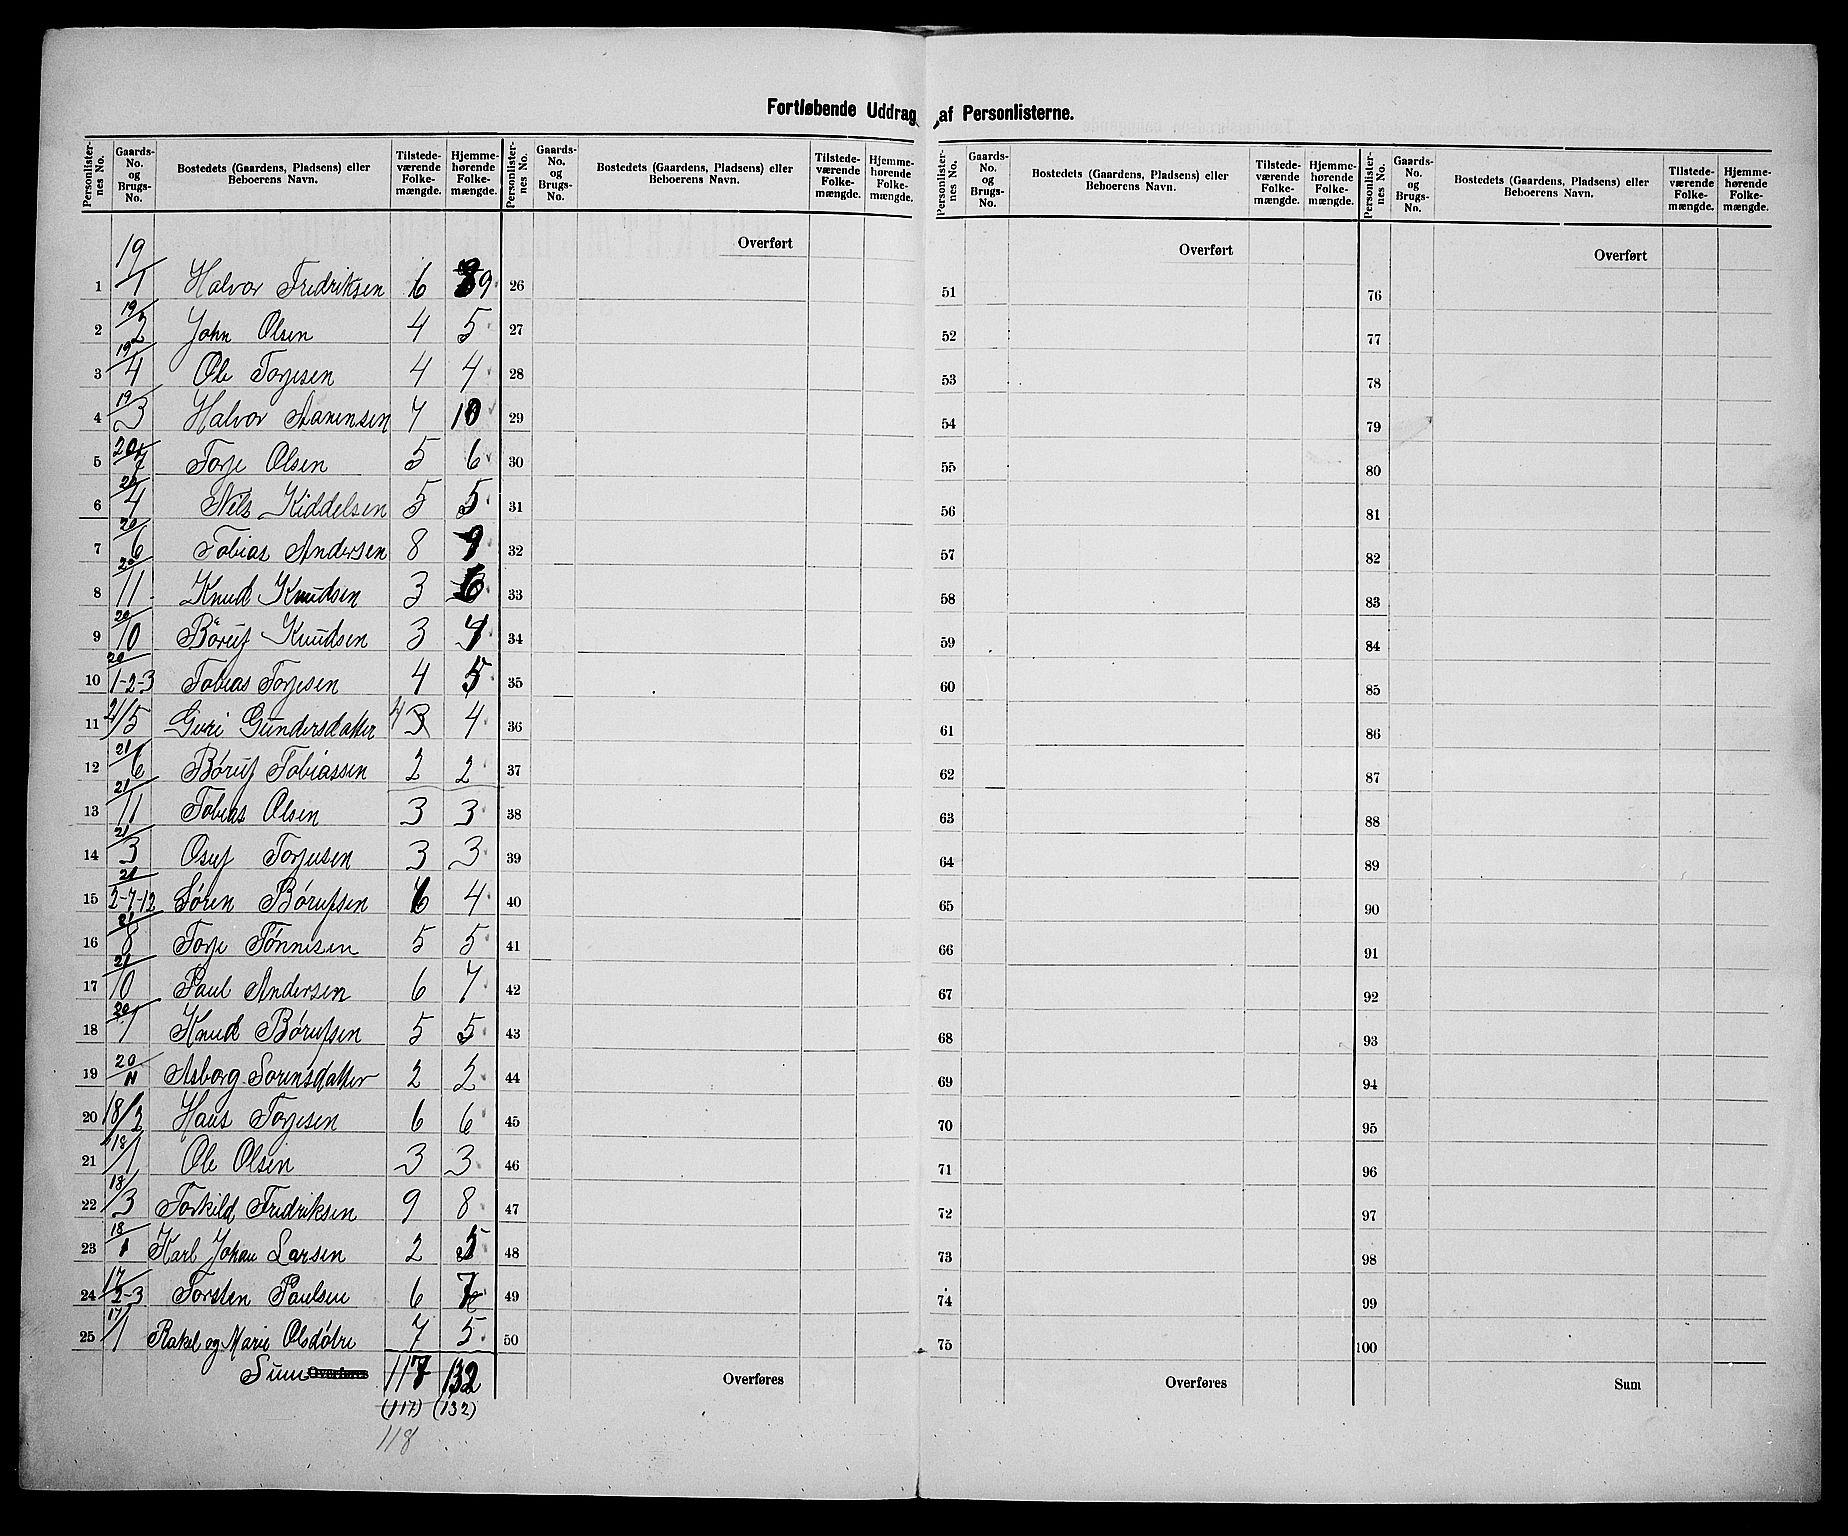 Fortløbende Uddrag af Personlisterne.
Personlister-nes No. Gaards-No. og Brugs-No. Bostedets (Gaardens, Pladsens) eller Beboerens Navn. Tilstede-værende Folke-mængde. Hjemme-hørende Folke-mængde.
Personlister-nes No. Gaards-No. og Brugs-No. Bostedets (Gaardens, Pladsens) eller Beboerens Navn. Tilstede-værende Folke-mængde. Hjemme-hørende Folke-mængde.
Personlister-nes No. Gaards-No. og Brugs-No. Bostedets (Gaardens, Pladsens) eller Beboerens Navn. Tilstede-værende Folke-mængde. Hjemme-hørende Folke-mængde.
Personlister-nes No. Gaards-No. og Brugs-No. Bostedets (Gaardens, Pladsens) eller Beboerens Navn. Tilstede-værende Folke-mængde. Hjemme-hørende Folke-mængde.
Overført Overført Overført
1 19/1 Halvor Fredriksen 6 9 26 51 76
2 19/2 John Olsen 4 5 27 52 77
3 19/4 Ole Torjesen 4 4 28 53 78
4 19/3 Halvor Aanensen 7 10 29 54 79
5 20/7 Torje Olsen 5 6 30 55 80
6 20/4 Nils Kiddelsen 5 5 31 56 81
7 20/6 Tobias Andersen 8 9 32 57 82
8 20/11 Knud Knudsen 3 6 33 58 83
9 20/10 Børuf Knudsen 3 4 34 59 84
10 20/1-2-3 Tobias Torjesen 4 5 35 60 85
11 21/5 Guri Gundersdatter 4 3 4 36 61 86
12 21/6 Børuf Tobiassen 2 2 37 62 87
13 21/11 Tobias Olsen 3 3 38 63 88
14 21/3 Osuf Torjusen 3 3 39 64 89
15 21/2-7-12 Søren Børufsen 6 4 40 65 90
16 21/8 Torje Tønnesen 5 5 41 66 91
17 21/10 Paul Andersen 6 7 42 67 92
18 20/1 Knud Børufsen 5 5 43 68 93
19 20/11 Asborg Sorensdatter 2 2 44 69 94
20 18/2 Hans Torjesen 6 6 45 70 95
21 18/1 Ole Olsen 3 3 46 71 96
22 18/3 Torkild Fredriksen 9 8 47 72 97
23 18/1 Karl Johan Larsen 2 5 48 73 98
24 17/2-3 Torsten Paulsen 6 7 49 74 99
25 17/1 Rakel og Marie Olsdøtre 7 5 50 75 100
Sum Overføres 117 132 Overføres Overføres Sum
(117) (132)
118